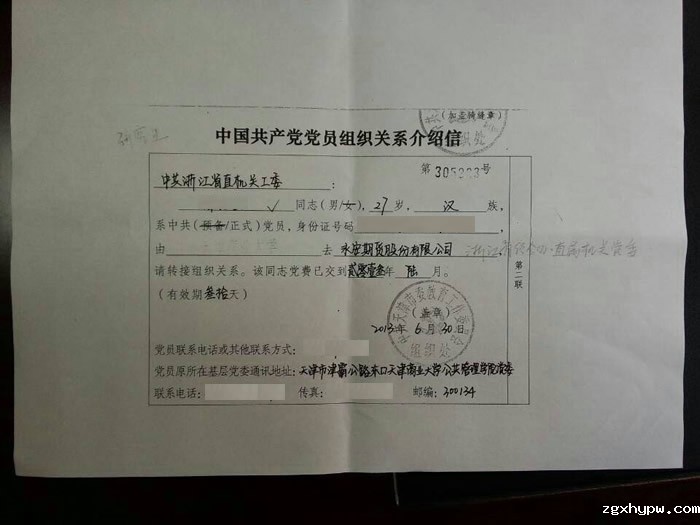 （加盖骑缝章）
组织处
中国共产党党员组织关系介绍信
第305223号
中共浙江省直机关工委：
同志（男/女），27岁，汉族，
系中共（预备/正式）党员，身份证号码
由 去 永安期货股份有限公司
请转接组织关系。该同志党费已交到贰零壹叁年 陆 月。
（有效期 叁拾 天）
第二联
（盖章）
天津市委教育工作委员会
组织处
2013年 6月30日
党员联系电话或其他联系方式：
党员原所在基层党委通讯地址：天津市津霸公路东口天津商业大学公共管理学院党委
联系电话： 传真： 邮编：300134
zgxhypw.com